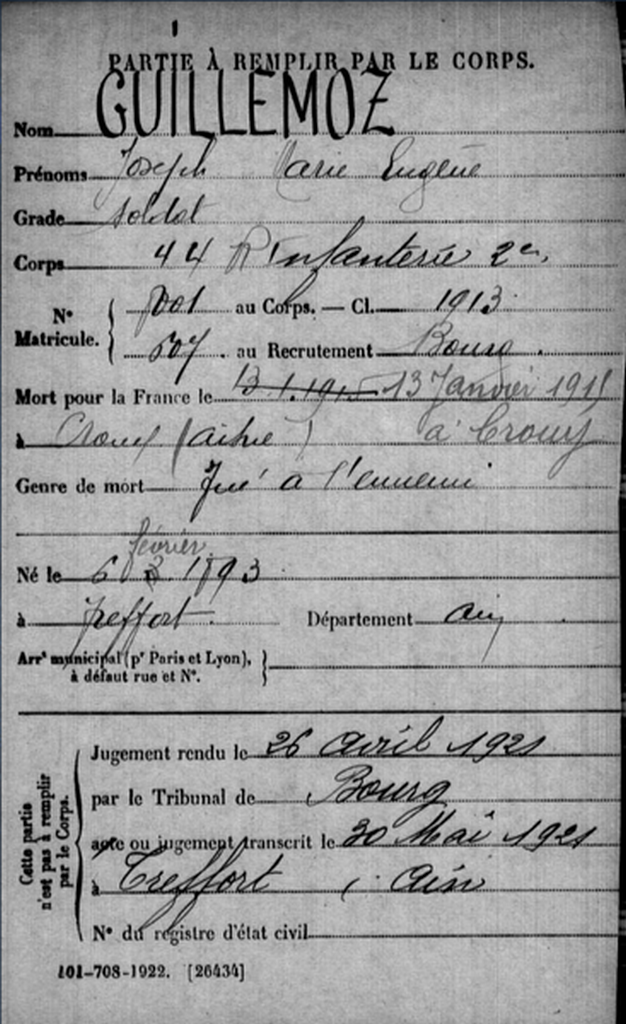 PARTIE À REMPLIR PAR LE CORPS.
Nom GUILLEMOZ
Prénoms Joseph Marie Eugène
Grade soldat
Corps 44 R Infanterie 2e
N° Matricule. { 7001 au Corps. — Cl. 1913
507 au Recrutement Bourg
Mort pour la France le 13.1.1915 13 Janvier 1915
à (aisne) à Crouy
Genre de mort Tué à l'ennemi
février
Né le 6 1893
à Treffort Département Ain
Arrt municipal (pr Paris et Lyon), à défaut rue et N°. }
Cette partie n'est pas à remplir par le Corps.
Jugement rendu le 26 avril 1921
par le Tribunal de Bourg
acte ou jugement transcrit le 30 Mai 1921
à Treffort , Ain
N° du registre d'état civil
101-708-1922. [26434]